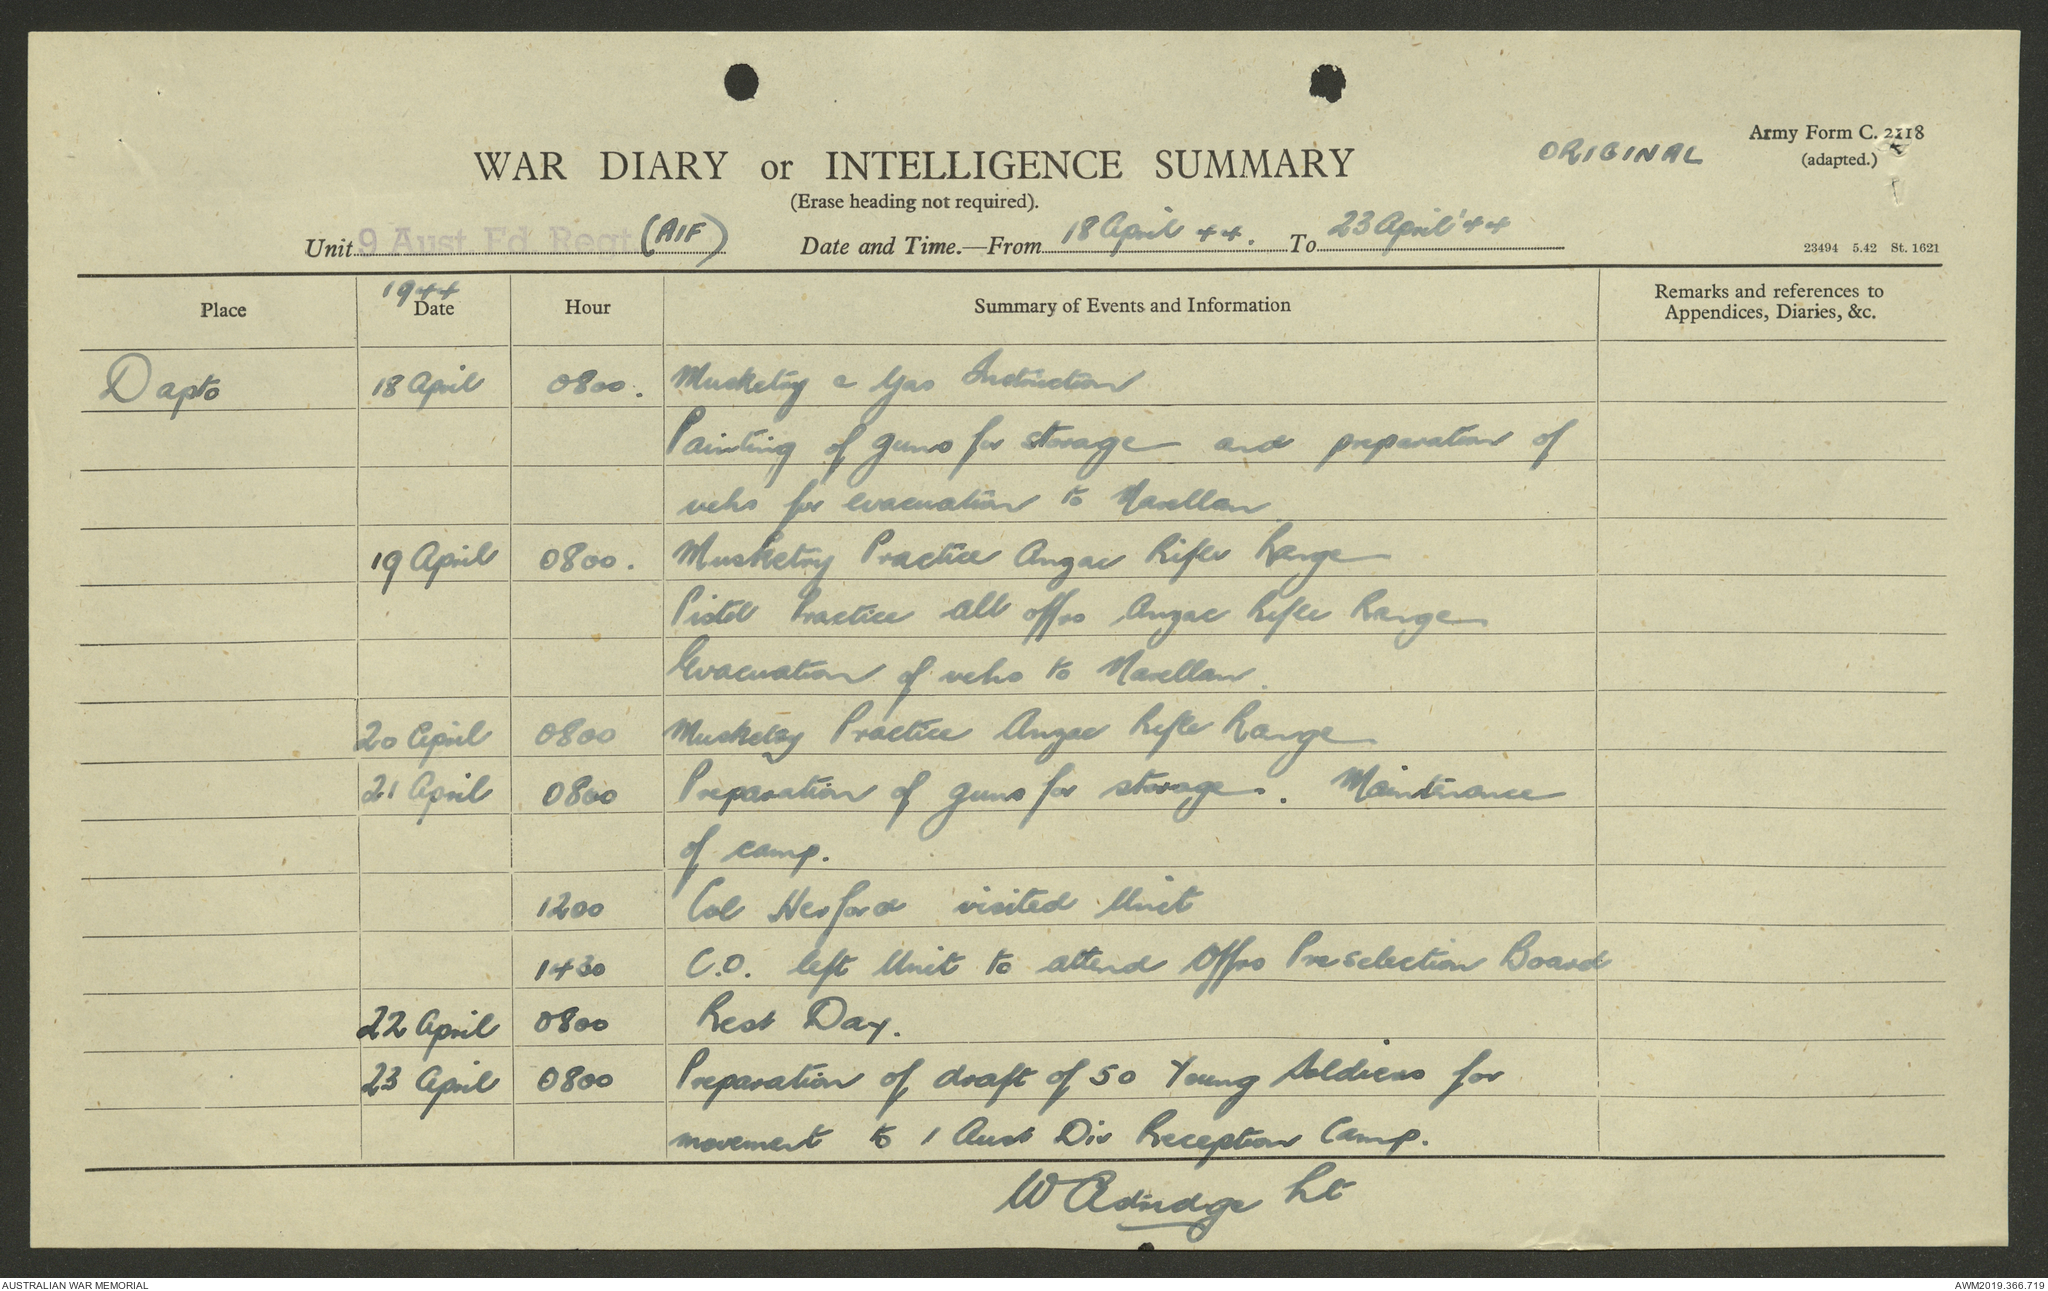 ORIGINAL
Army Form C. 2118
(adapted.)
WAR DIARY or INTELLIGENCE SUMMARY
(Erase heading not required).
Unit 9 Aust. Fd. Regt. (AIF) Date and Time.—From 18 April 44. To 23 April '44
23494 5.42 St. 1621
Place 1944 Date Hour Summary of Events and Information Remarks and references to Appendices, Diaries, &c.
Dapto 18 April 0800. Musketry & Gas Instruction
Painting of guns for storage and preparation of
vehs for evacuation to Narellan
19 April 0800. Musketry Practice Anzac Rifle Range
Pistol Practice all offrs Anzac Rifle Range
Evacuation of vehs to Narellan.
20 April 0800 Musketry Practice Anzac Rifle Range
21 April 0800 Preparation of guns for storage. Maintenance
of camp.
1200 Col Herford visited Unit
1430 C.O. left Unit to attend Offrs Preselection Board
22 April 0800 Rest Day.
23 April 0800 Preparation of draft of 50 Young Soldiers for
movement to 1 Aust Div Reception Camp.
W Lt
AUSTRALIAN WAR MEMORIAL
AWM2019.366.719